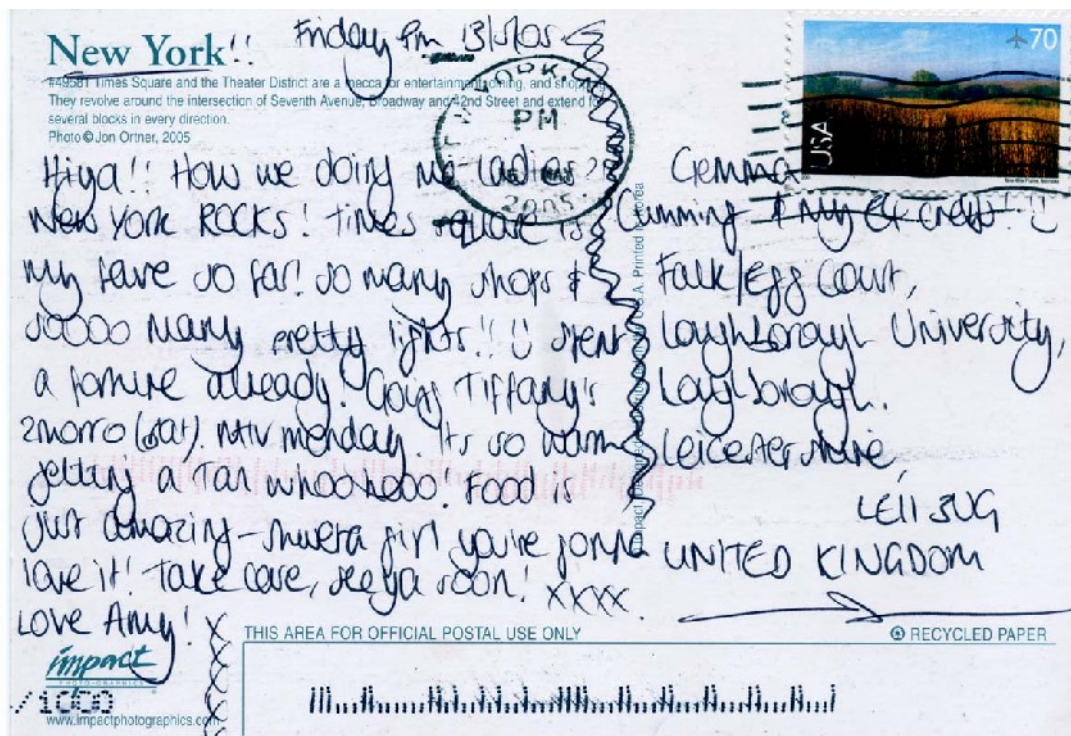 New York!! Friday pm 13/5/05
#49581 Times Square and the Theater District are a mecca for entertainment, dining, and shopping.
They revolve around the intersection of Seventh Avenue, Broadway and 42nd Street and extend for
several blocks in every direction.
Photo © Jon Ortner, 2005
PM
2005
USA 70
Hiya!! How we doing me ladies?
NEW YORK ROCKS! Times square is
my fave so far! so many shops &
soooo many pretty lights!! spent
a fortune already. Going Tiffany's
2morro (sat). mtv monday. It's so warm
getting a tan whoohooo! Food is
just amazing - shweta girl you're gonna
love it! Take care, see ya soon! xxxx
Love Amy! x
Gemma
Cumming & my E4 crew!!
Falk/Egg Court,
Loughborough University,
Loughborough.
Leicestershire
LE11 3UG
UNITED KINGDOM
U.S.A. Printed in Korea
impact
PHOTO-GRAPHICS
/1000
www.impactphotographics.com
THIS AREA FOR OFFICIAL POSTAL USE ONLY
RECYCLED PAPER